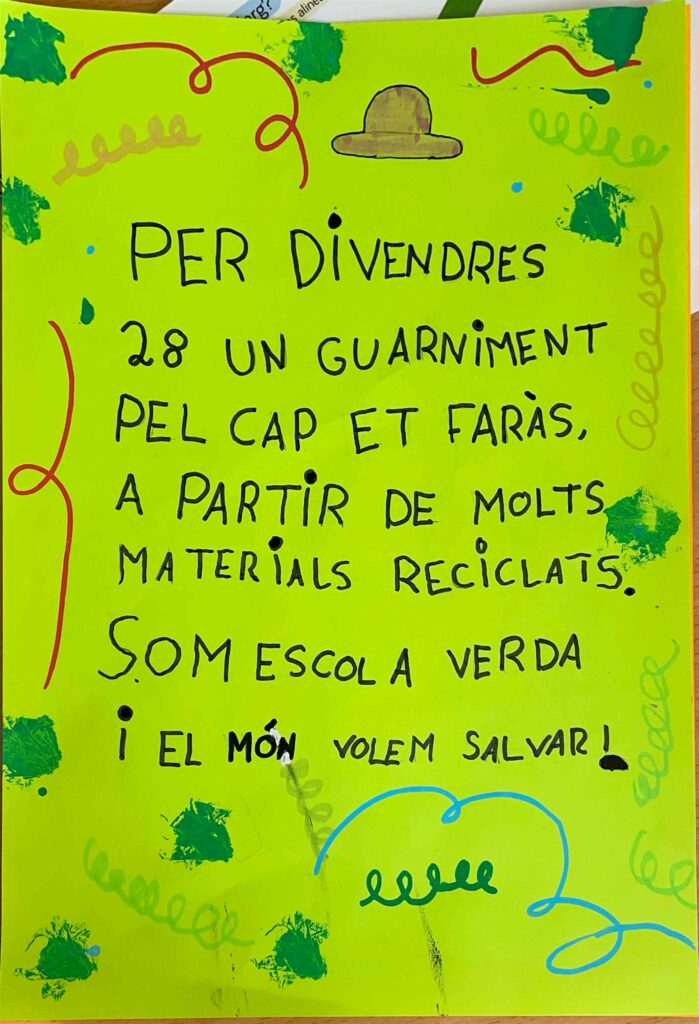 PER DIVENDRES
28 UN GUARNIMENT
PEL CAP ET FARÀS,
A PARTIR DE MOLTS
MATERIALS RECICLATS.
SOM ESCOLA VERDA
i EL MÓN VOLEM SALVAR!